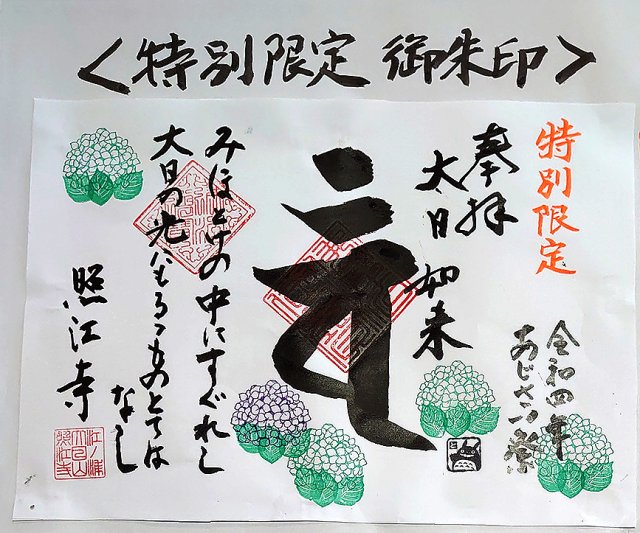 ＜特別限定 御朱印＞
特別限定
令和四年
あじさゐ祭
奉拝
大日如来
みほとけの中にすぐれし
大日の光にもるゝものとては
なし
照江寺
江ノ浦
照江寺